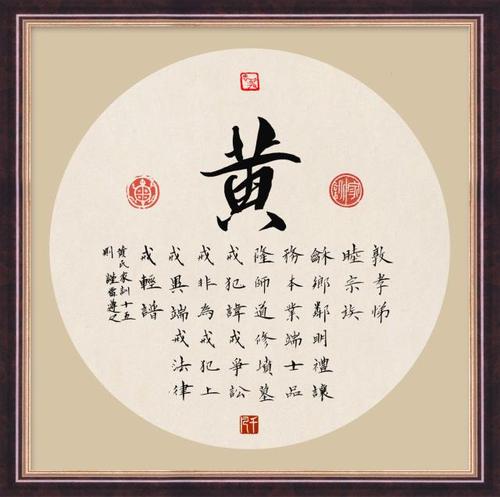 黄
敦孝悌
睦宗族
龢鄉鄰明禮讓
務本業端士品
隆師道修墳墓
戒犯諱戒爭訟
戒非為戒犯上
戒異端戒法律
戒輕譜
黄氏家訓十五
則謹當遵之
家訓